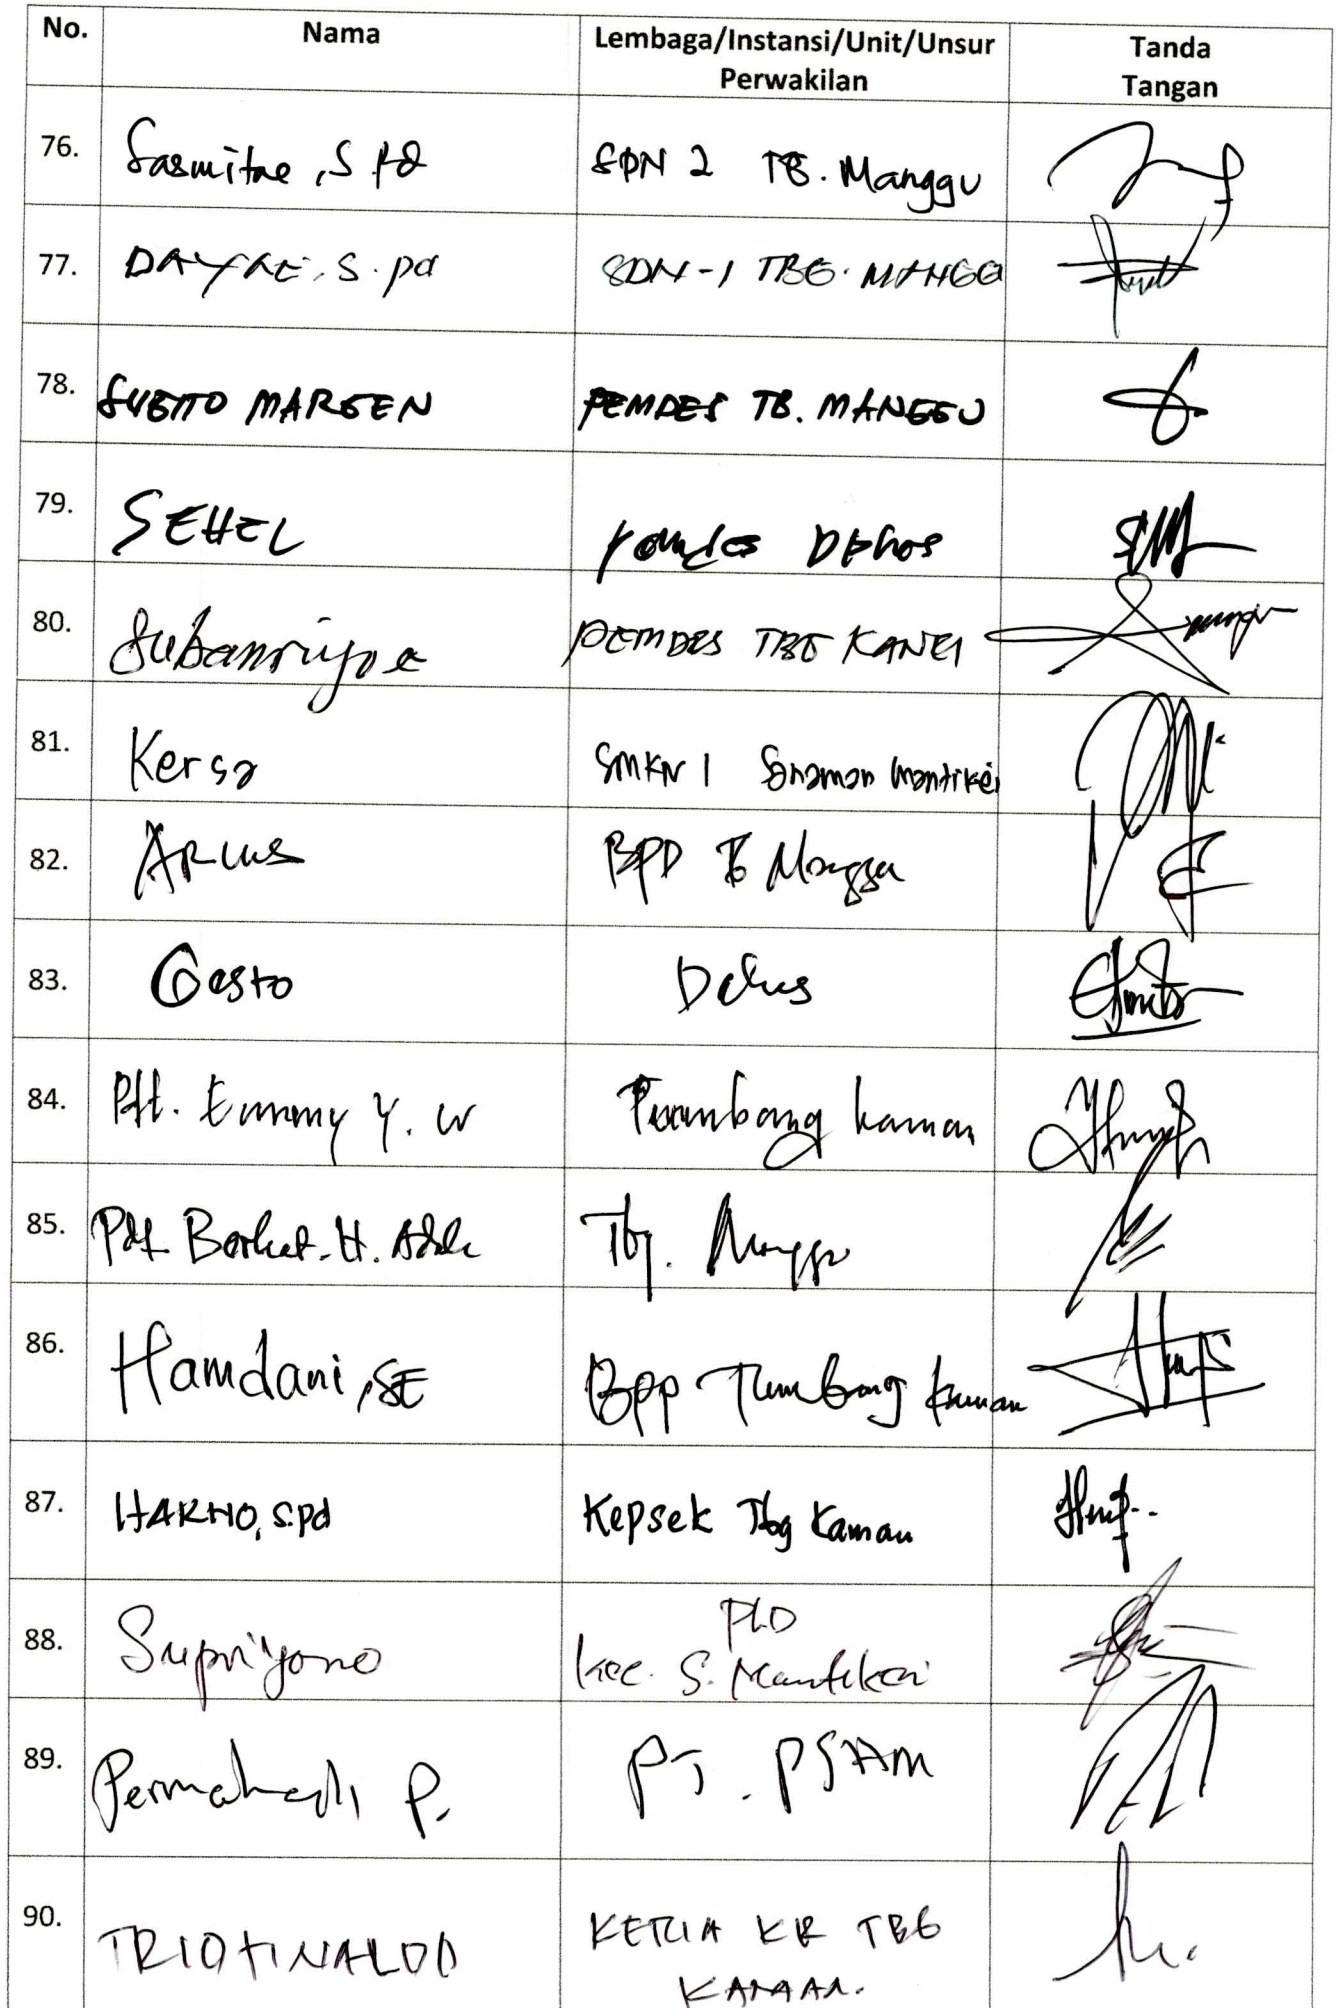 No. Nama Lembaga/Instansi/Unit/Unsur Perwakilan Tanda Tangan
76. Sasmitae, S.Pd SDN 2 TB. Manggu
77. S.pd SDN-1 TBG.
78. PEMDES TB. MANGGU
79. SEHEL
80. PEMDES TBG KANEI
81. Kersa SMKN 1 Sanaman Mantikei
82. BPD Tb Manggu
83. Gesto
84. Pdt. Emmy Y. W Tumbang kaman
85. Pdt. Berkat. H. Tbg. Manggu
86. Hamdani, SE BPP Tumbang kaman
87. HARNO, S.Pd Kepsek Tbg Kaman
88. Supriyono PLD
Kec. S. Mantikei
89. Permahadi P. PT. PSAM
90. KETUA KR TBG
KAMAN.